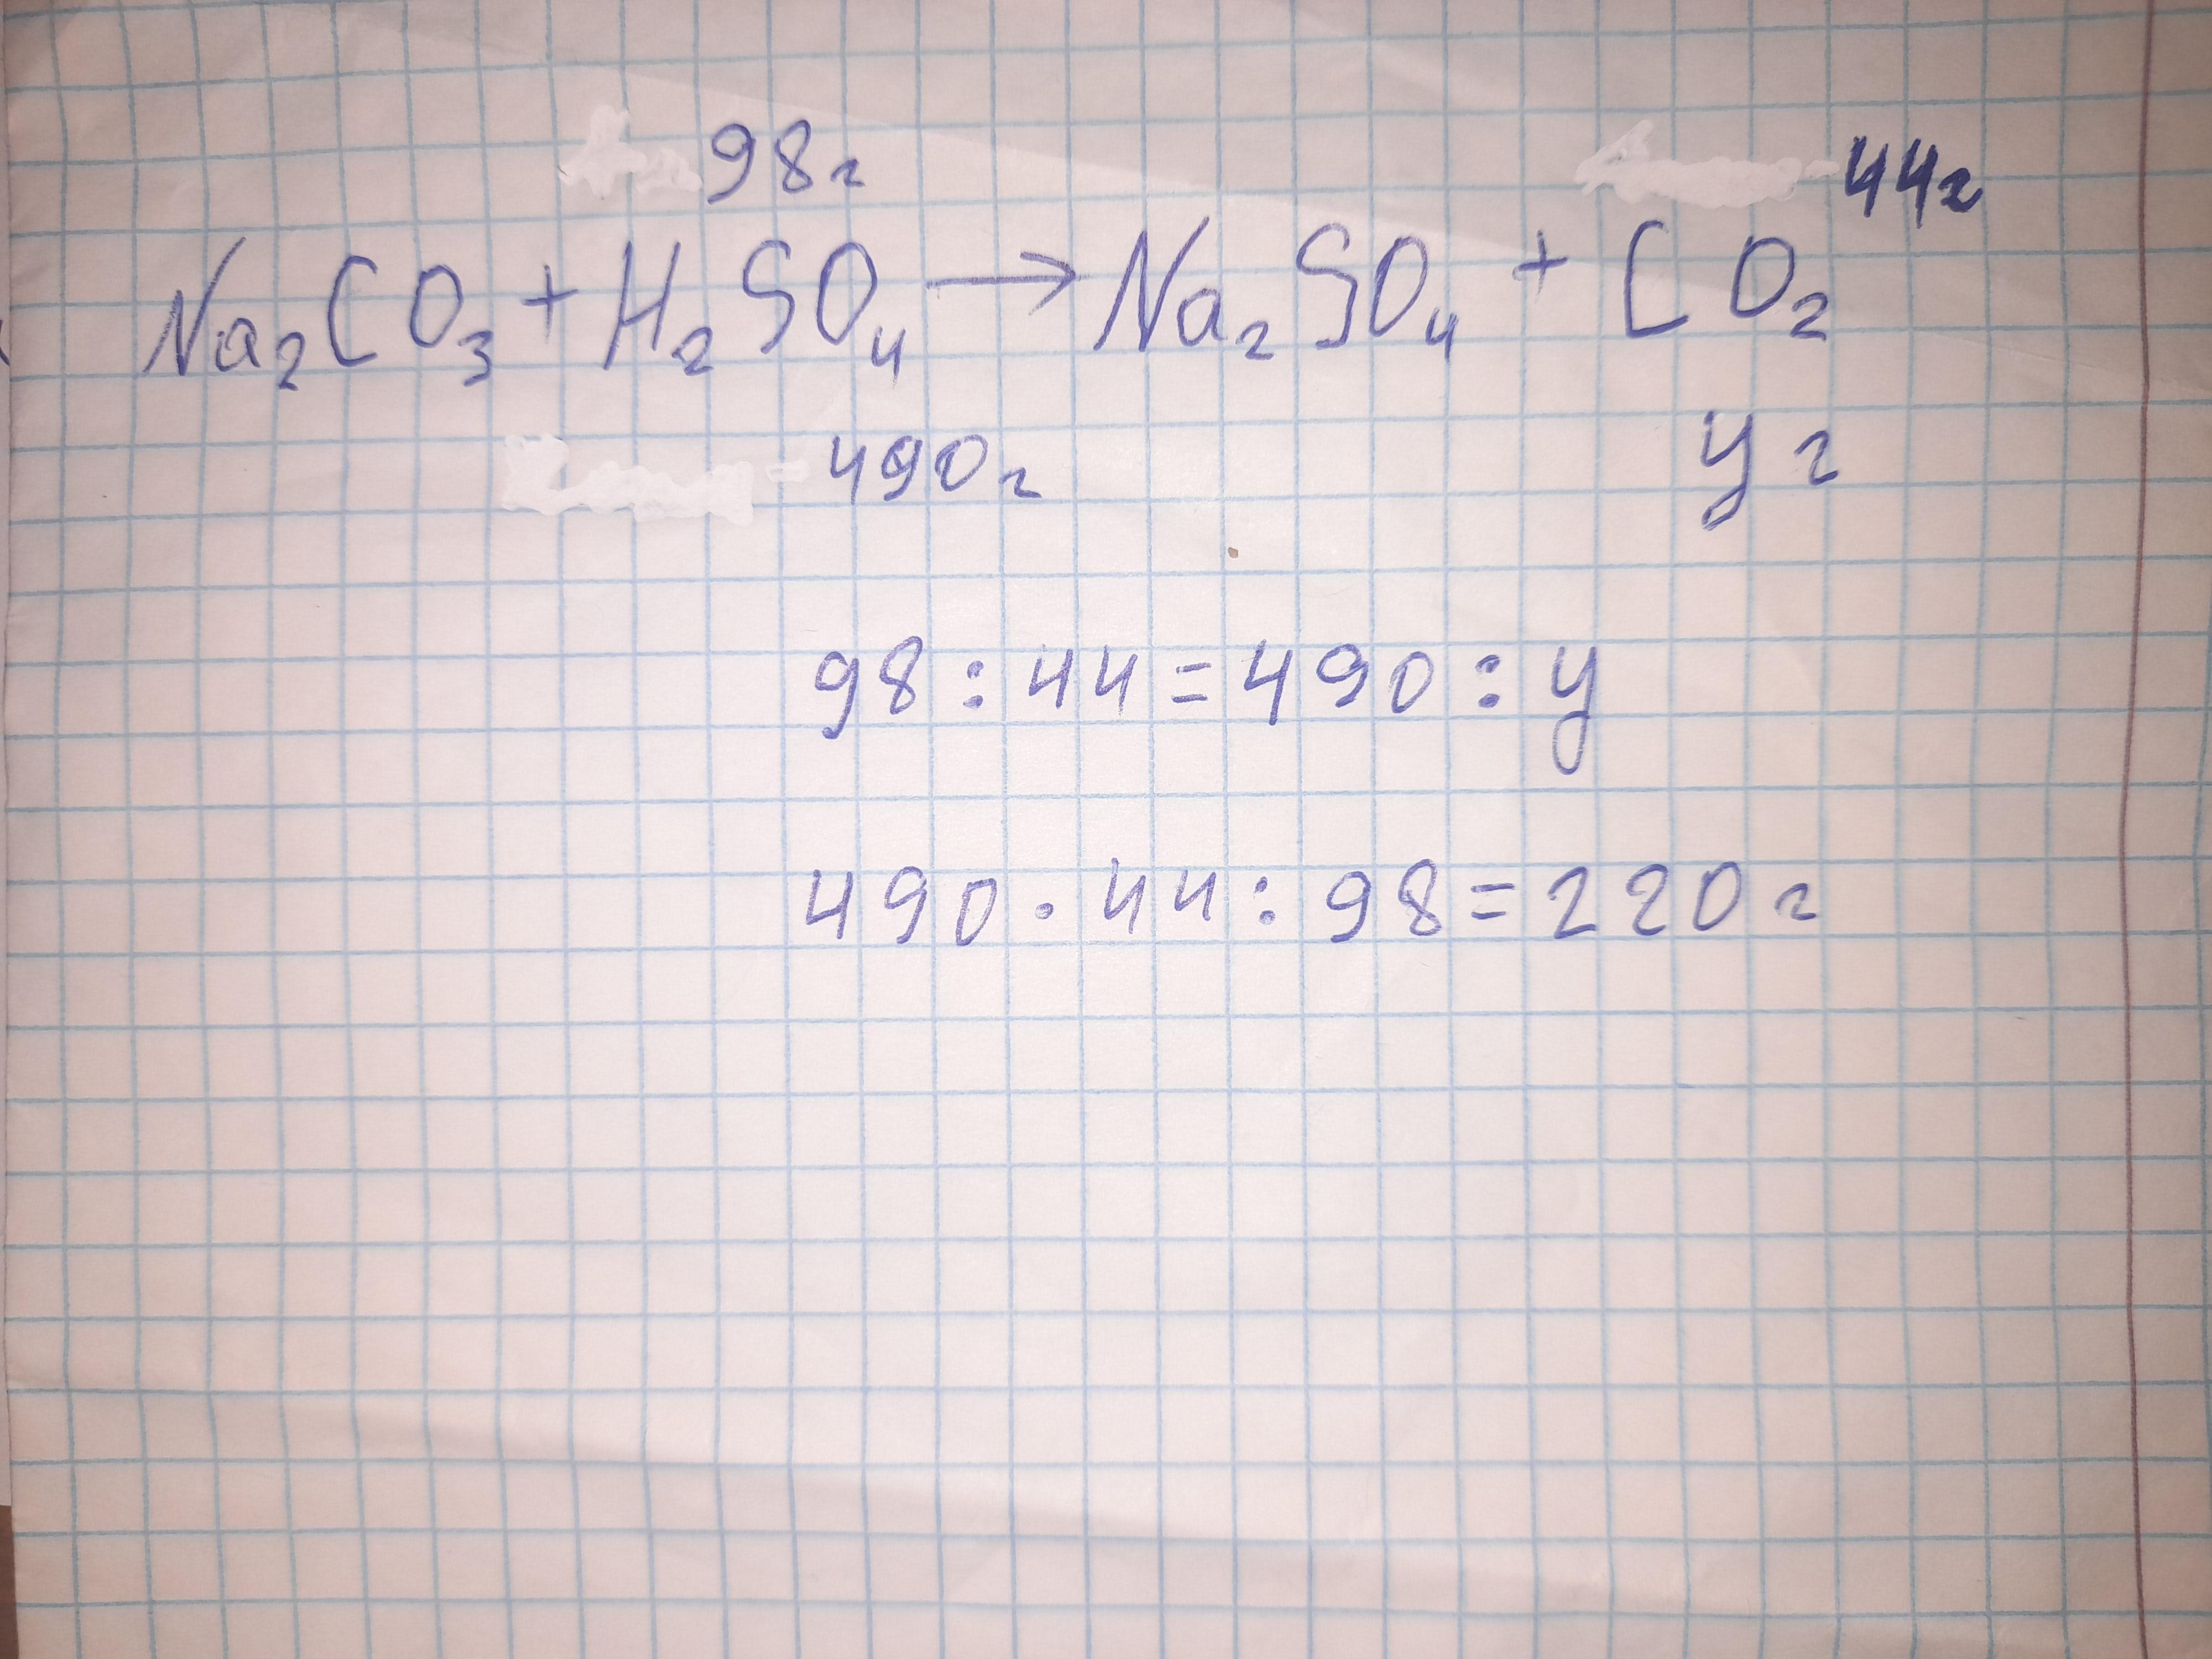 98г 44г
Na₂CO₃ + H₂SO₄ → Na₂SO₄ + CO₂
490г y г
98 : 44 = 490 : y
490 · 44 : 98 = 220 г